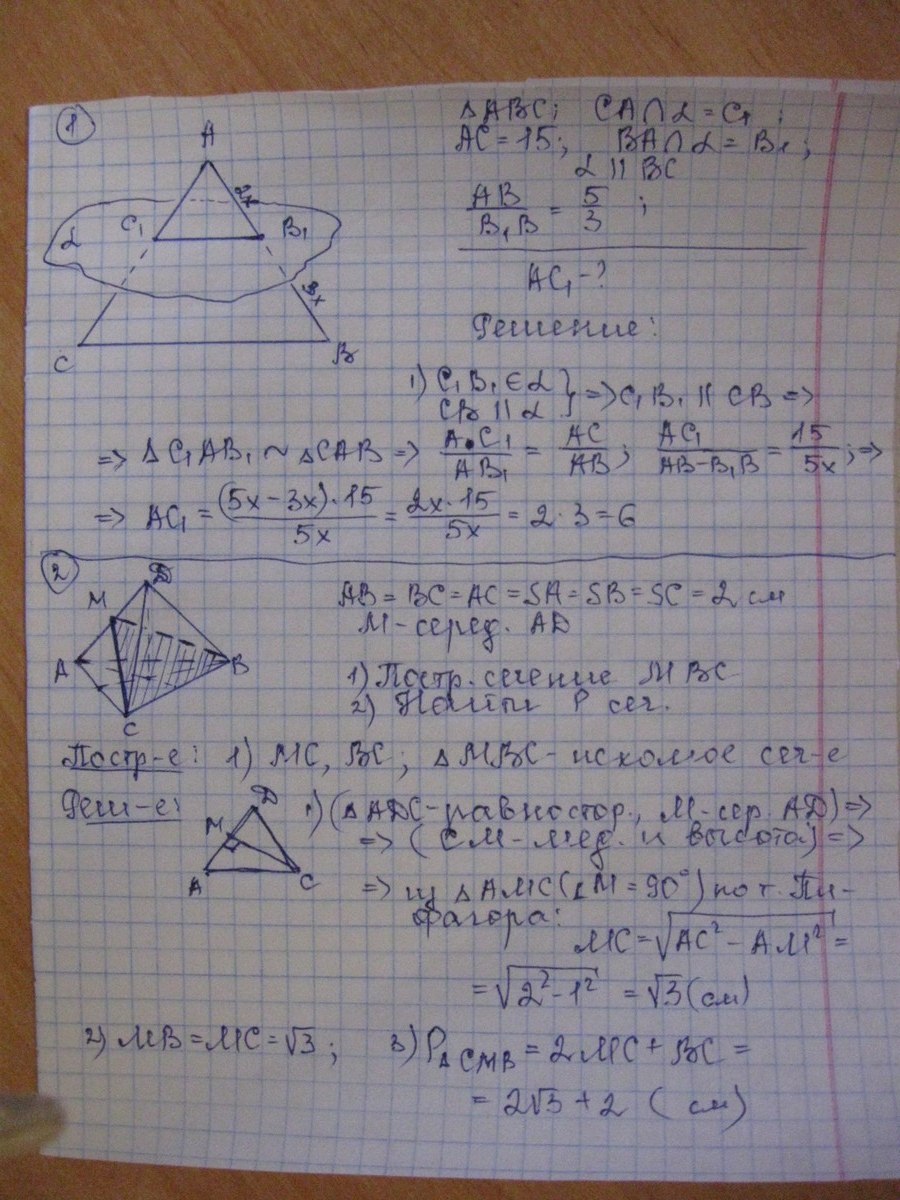 1
A
2x
C₁
B₁
α
3x
C
B
ΔABC; CA∩α = C₁;
AC = 15; BA∩α = B₁;
α || BC
AB/B₁B = 5/3;
AC₁ - ?
Решение:
1) C₁B₁ ∈ α } => C₁B₁ || CB =>
CB || α
=> ΔC₁AB₁ ~ ΔCAB => AC₁/AB₁ = AC/AB; AC₁/AB-B₁B = 15/5x; =>
=> AC₁ = (5x-3x)·15/5x = 2x·15/5x = 2·3 = 6
2
D
M
A
B
C
AB = BC = AC = SA = SB = SC = 2 см
M - серед. AD
1) Постр. сечение MBC
2) Найти P сеч.
Постр-е: 1) MC, BC; ΔMBC - искомое сеч-е
Реш-е:
D
M
A
C
1) (ΔADC - равностор., M - сер. AD) =>
=> (CM - мед. и высота) =>
=> из ΔAMC (∠M = 90°) по т. Пи-
фагора:
MC = √AC² - AM² =
= √2² - 1² = √3 (см)
2) MB = MC = √3; 3) P ΔCMB = 2MC + BC =
= 2√3 + 2 (см)